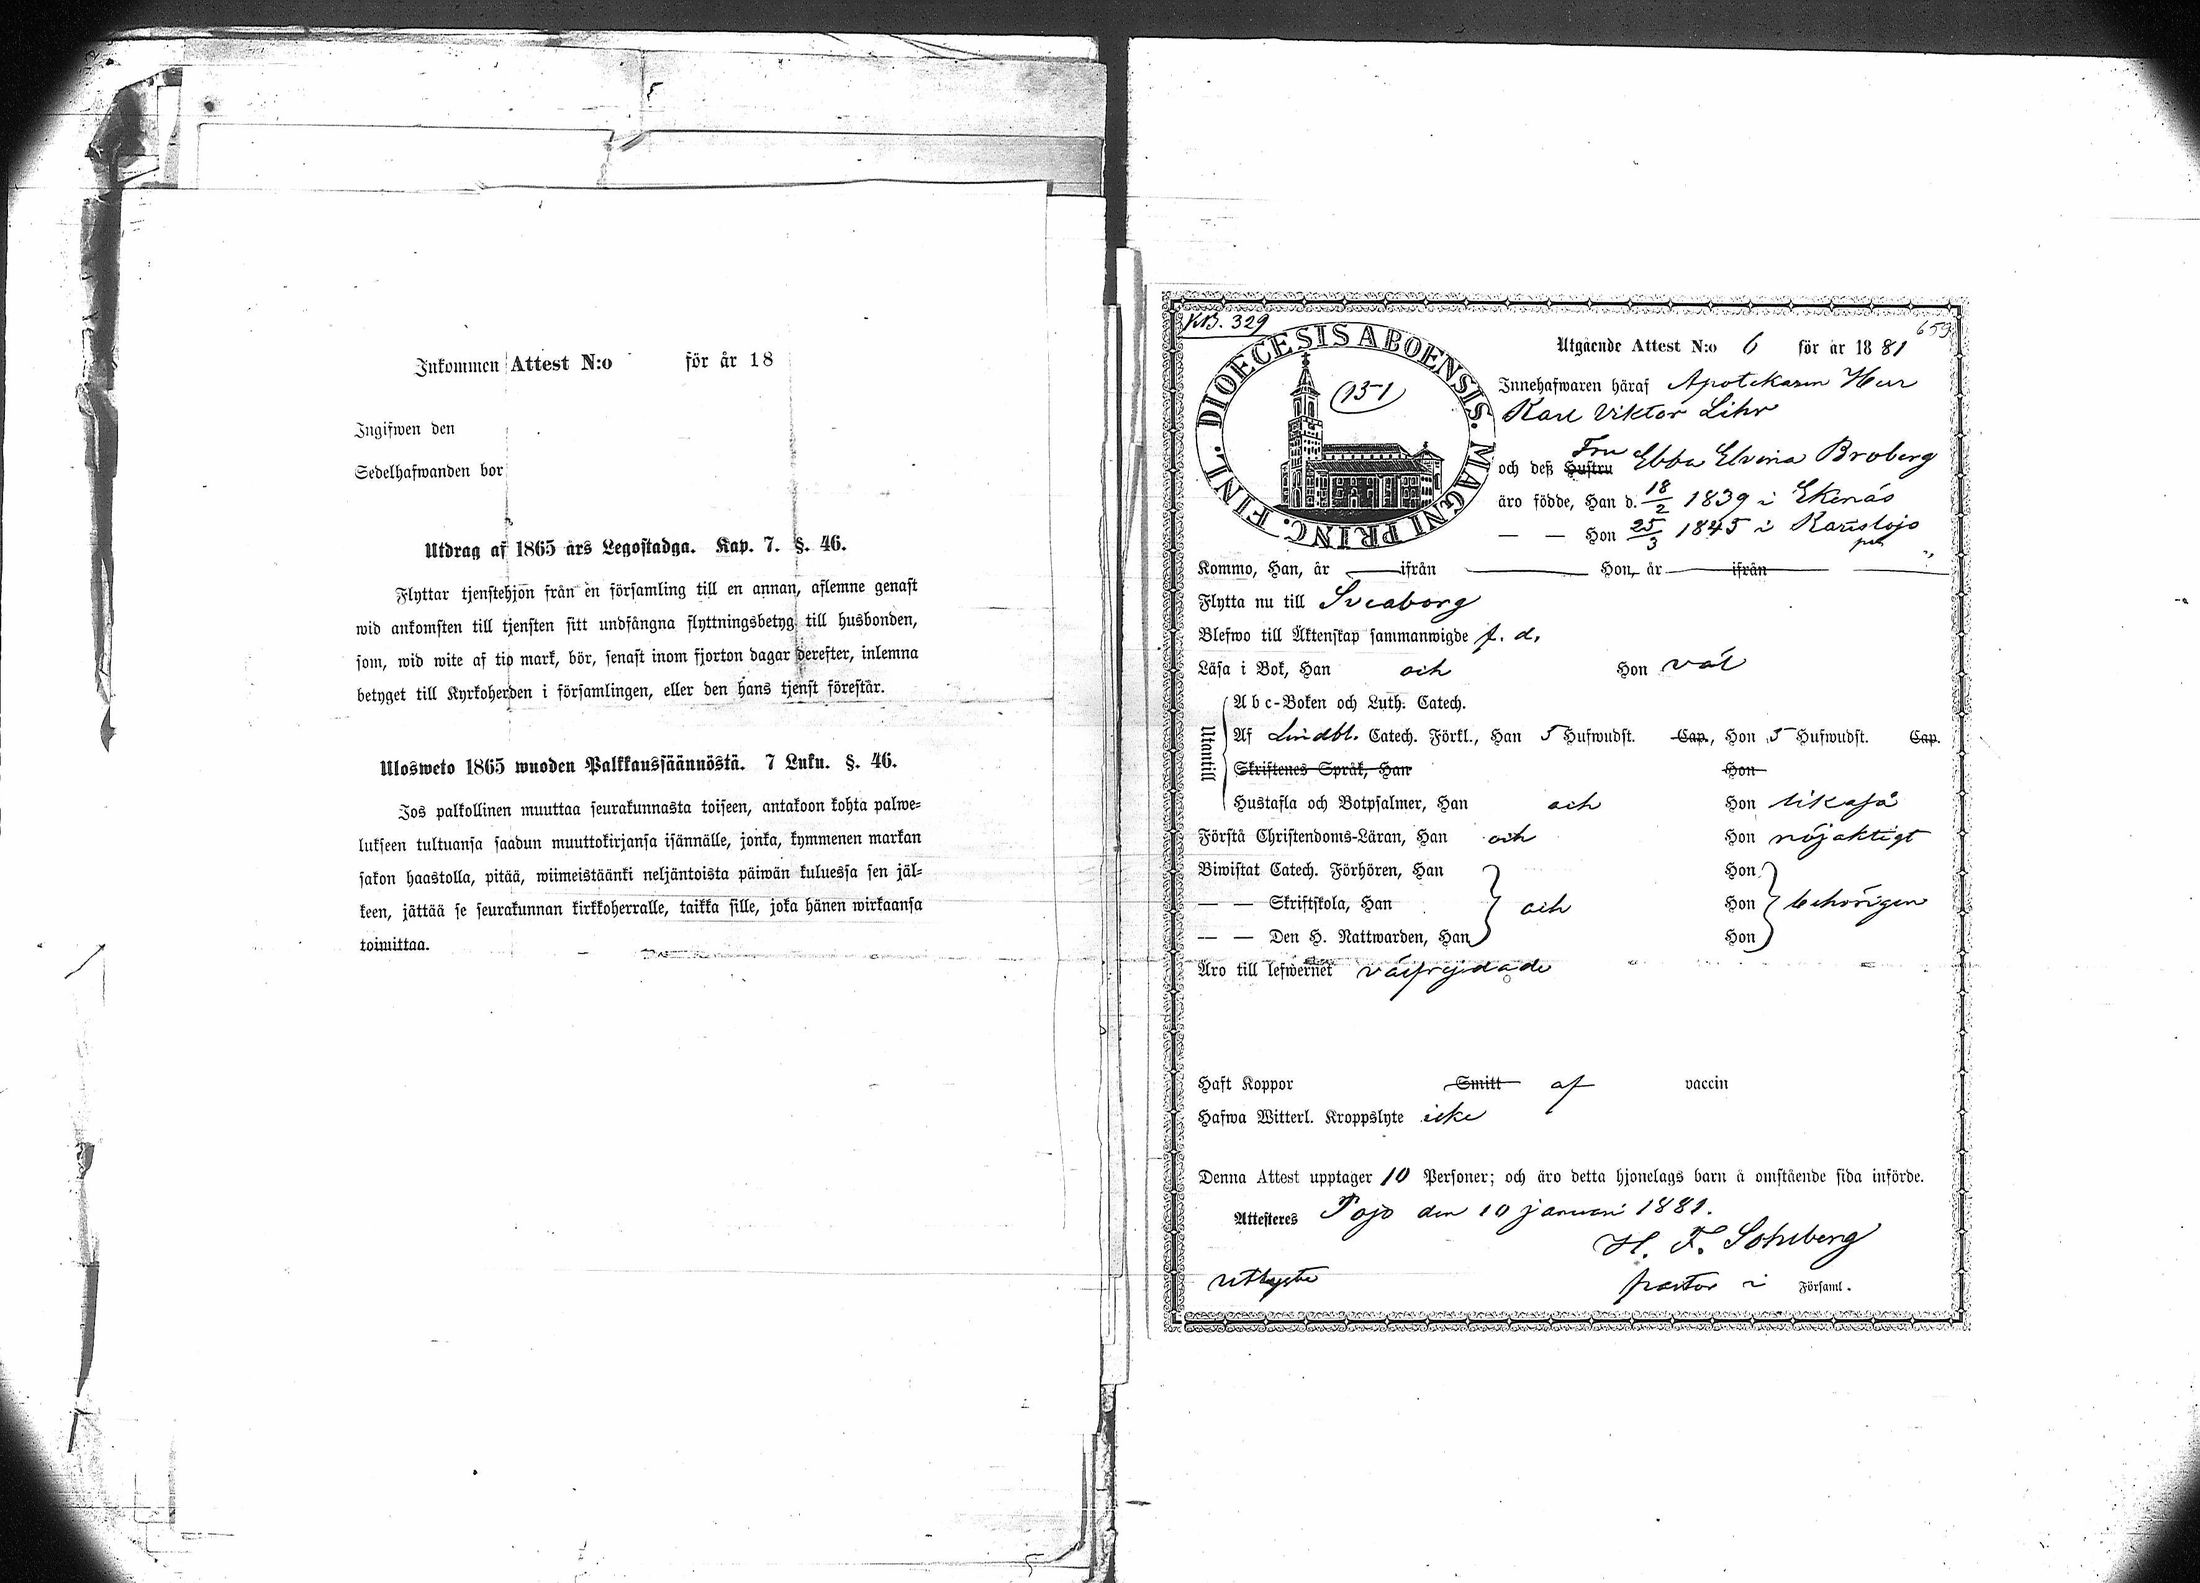 Inkommen Attest N:o för år 18
Ingifwen den
Sedelhafwanden bor
Utdrag af 1865 års Legostadga. Kap. 7. §. 46.
Flyttar tjenstehjon från en församling till en annan, aflemne genast
wid ankomsten till tjensten sitt undfångna flyttningsbetyg till husbonden,
som, wid wite af tio mark, bör, senast inom fjorton dagar derefter, inlemna
betyget till Kyrkoherden i församlingen, eller den hans tjenst förestår.
Ulosweto 1865 wuoden Palkkaussäännöstä. 7 Luku. §. 46.
Jos palkollinen muuttaa seurakunnasta toiseen, antakoon kohta palwe-
lukseen tultuansa saadun muuttokirjansa isännälle, jonka, kymmenen markan
sakon haastolla, pitää, wiimeistäänki neljäntoista päiwän kuluessa sen jäl-
keen, jättää se seurakunnan kirkkoherralle, taikka sille, joka hänen wirkaansa
toimittaa.
KB. 329
659
DIOECESIS ABOENSIS. MAGNI PRINC. FINL.
151
Utgående Attest N:o 6 för år 1881
Innehafwaren häraf Apotekaren Herr
Karl Viktor Lihr
Fru
och deß Hustru Ebba Elvina Broberg
äro födde, Han d. 18/2 1839 i Ekenäs
— — Hon 25/3 1845 i Karislojo
Kommo, Han, år ifrån Hon, år ifrån
Flytta nu till Sveaborg
Blefwo till Äktenskap sammanwigde f. d.
Läsa i Bok, Han och Hon väl
Utantill
Abc-Boken och Luth. Catech.
Af Lindbl. Catech. Förkl., Han 5 Hufwudst. Cap., Hon 5 Hufwudst. Cap.
Skriftenes Språk, Han Hon
Hustafla och Botpsalmer, Han och Hon likaså
Förstå Christendoms-Läran, Han och Hon nöjaktigt
Biwistat Catech. Förhören, Han Hon
— — Skriftskola, Han och Hon behörigen
— — Den H. Nattwarden, Han Hon
Äro till lefwernet välfrejdade
Haft Koppor Smitt af vaccin
Hafwa Witterl. Kroppslyte icke
Denna Attest upptager 10 Personer; och äro detta hjonelags barn å omstående sida införde.
Attesteres Pojo den 10 januari 1881.
H. F. Sohlberg
utflyttn pastor i Församl.